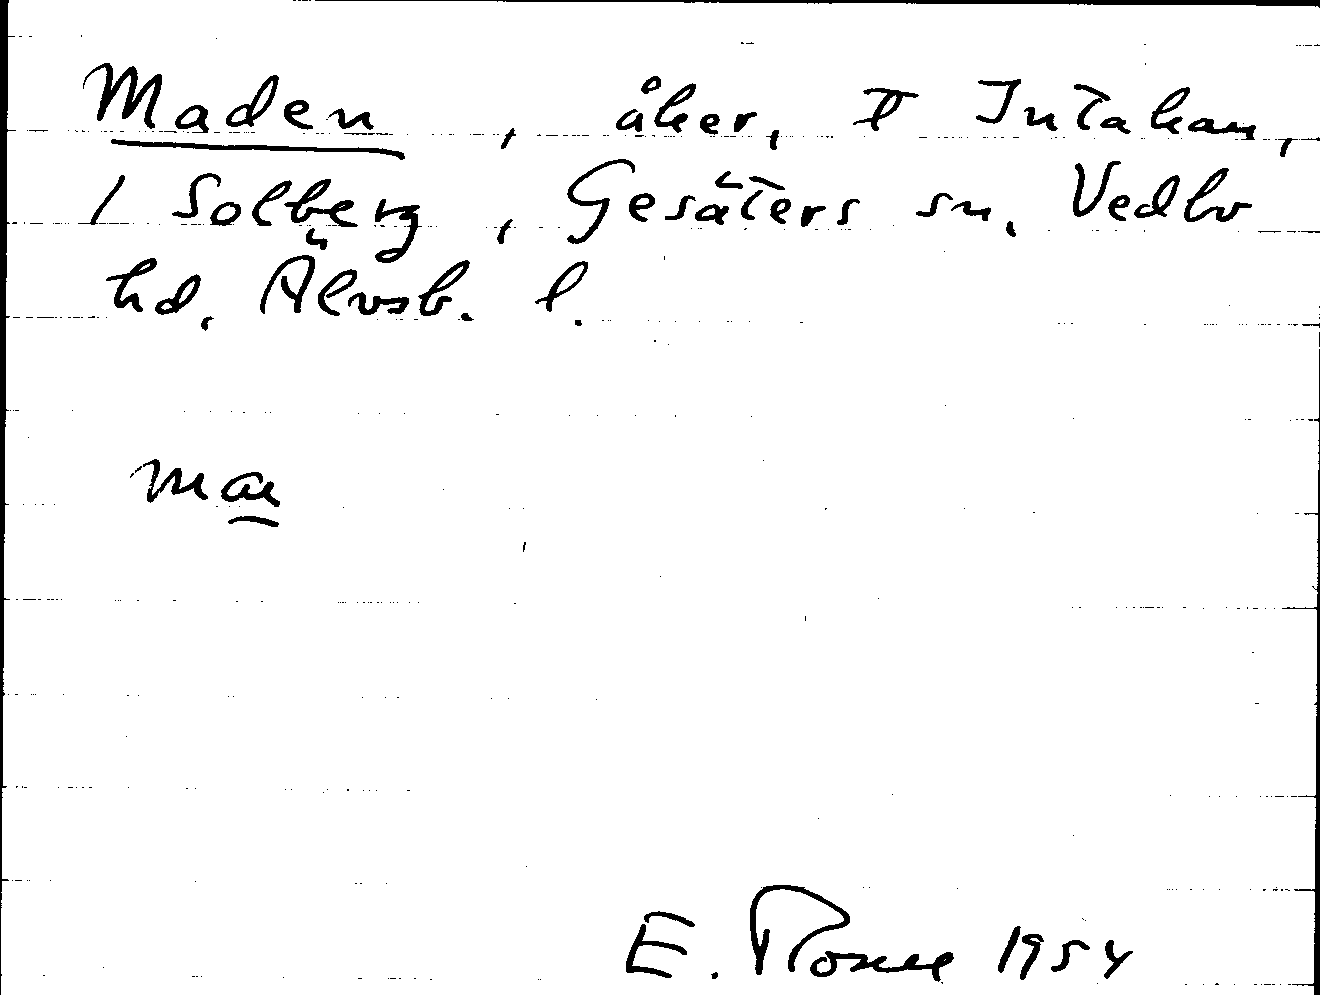 Maden, åker, T Intakan,
/ Solberg, Gesäters sn. Vedbo
hd. Älvsb. l.
man
E. Rosell 1954